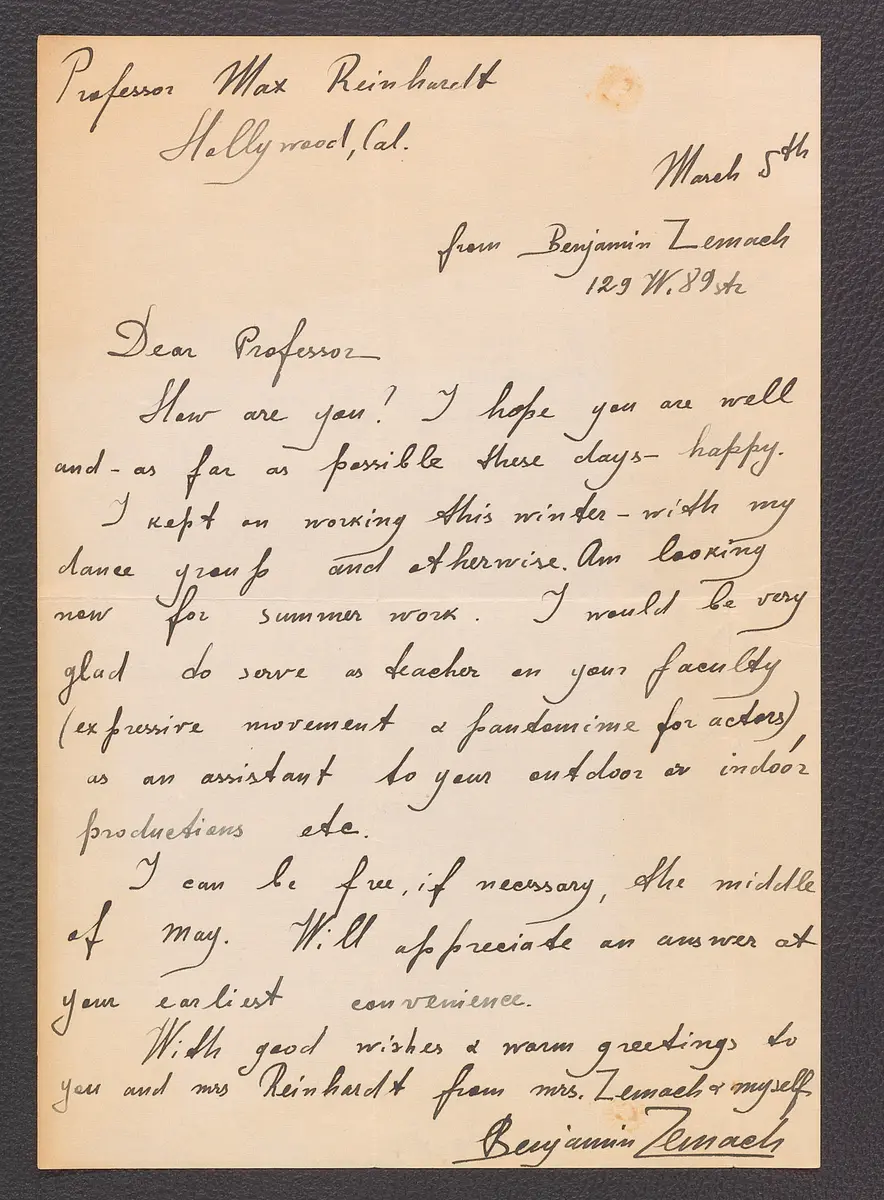 Professor Max Reinhardt
Hollywood, Cal.
March 5th
from Benjamin Zemach
129 W. 89 str
Dear Professor
How are you? I hope you are well
and - as far as possible these days - happy.
I kept on working this winter - with my
dance group and otherwise. Am looking
now for summer work. I would be very
glad to serve as teacher on your faculty
(expressive movement & pantomime for actors),
as an assistant to your outdoor or indoor
productions etc.
I can be free, if necessary, the middle
of May. Will appreciate an answer at
your earliest convenience.
With good wishes & warm greetings to
you and mrs Reinhardt from mrs. Zemach & myself
Benjamin Zemach